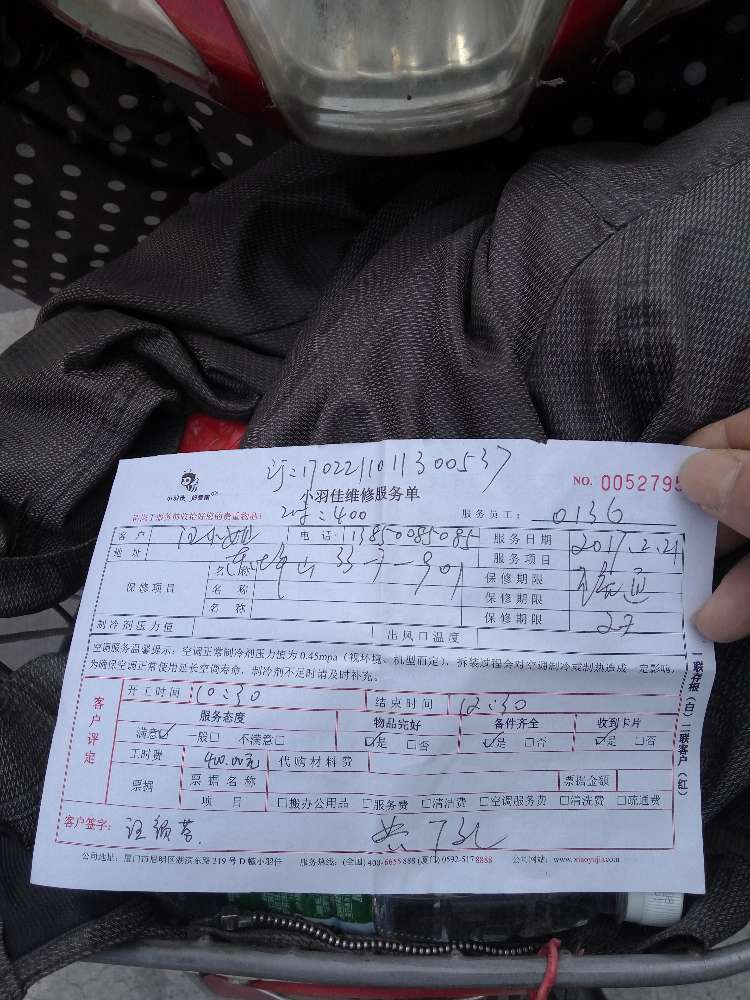 订:1702211011300537
小羽佳 好管家
小羽佳维修服务单
NO. 0052795
:400
服务员工: 0136
客户 汪小姐 电话: 13850085085 服务日期 2017.2.21
地址 服务项目
保修项目 名称 保修期限
名称 保修期限
名称 保修期限
制冷剂压力值 出风口温度
空调服务温馨提示: 空调正常制冷剂压力值为 0.45mpa (视环境、机型而定), 拆装过程会对空调制冷或制热造成一定影响,
为确保空调正常使用延长空调寿命, 制冷剂不足时请及时补充。
一联存根(白)二联客户(红)
客户评定
开工时间 10:30 结束时间 12:30
服务态度 物品完好 备件齐全 收到卡片
满意☑ 一般□ 不满意□ ☑是 □否 ☑是 □否 ☑是 □否
工时费 400.00元 代购材料费
票据 票据名称 票据金额
项目 □搬办公用品 □服务费 □清洁费 □空调服务费 □清洗费 □疏通费
客户签字: 汪
公司地址: 厦门市思明区湖滨东路 219 号 D 幢小羽佳 服务热线: (全国) 400-6655888 (厦门) 0592-5178888 公司网站: www.xiaoyujia.com